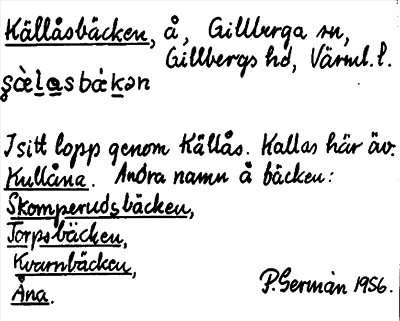 Källåsbäcken, å, Gillberga sn,
Gillbergs hd, Värml. l.
I sitt lopp genom Källås. Kallas här äv.
Kullåna. Andra namn å bäcken:
Skomperudsbäcken,
Torpsbäcken,
Kvarnbäcken,
Åna.
P. Germán 1956.